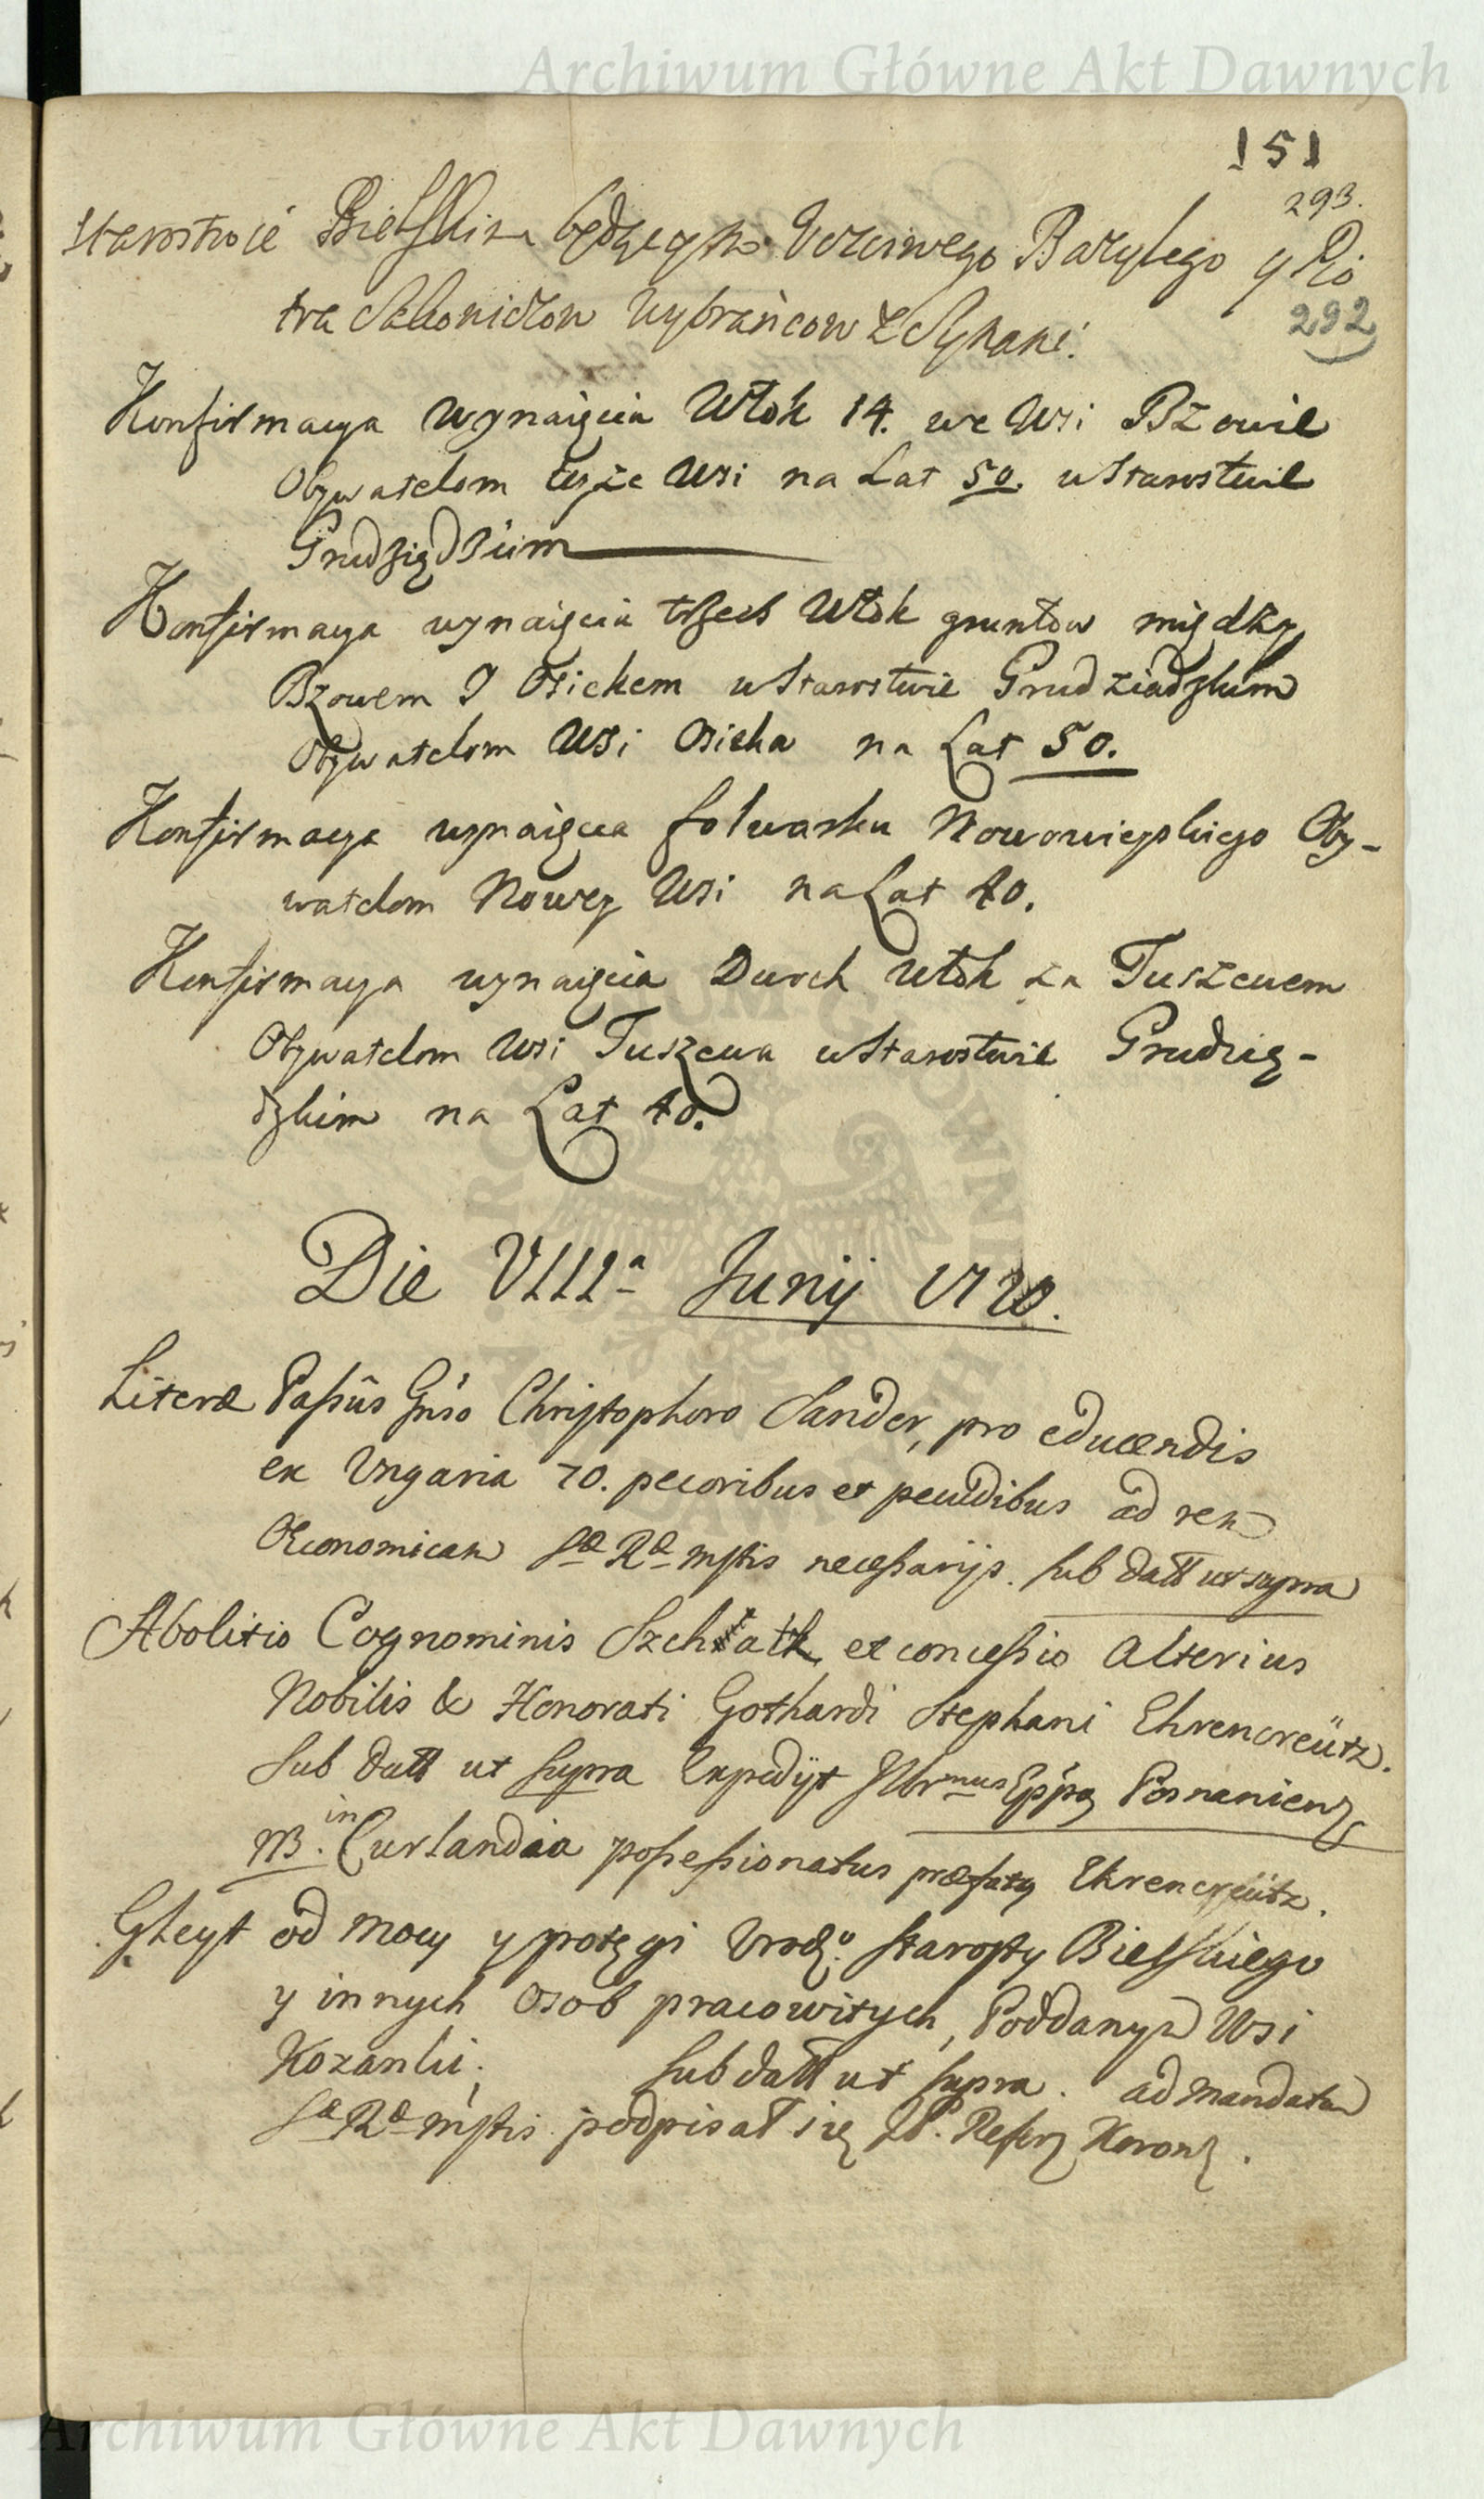 Archiwum Główne Akt Dawnych
151
293.
Starostwie Bielskim będących Uczciwego Bazylego y Pio
292
tra Wybrańcow z
Konfirmacya wynaięcia Włok 14. we Wsi Bzowie
Obywatelom teyże Wsi na Lat 50. w Starostwie
Grudziądzkim
Konfirmacya wynaięcia trzech Włok gruntow między
Bzowem y Osiekem w Starostwie Grudziadzkim
Obywatelom Wsi Osieka na Lat 50.
Konfirmacya wynaięcia folwarku Nowowieyskiego Oby-
watelom Nowey Wsi na Lat 40.
Konfirmacya wynaięcia Dwoch Włok za Tuszewem
Obywatelom Wsi Tuszewa w Starostwie Grudzią-
dzkim na Lat 40.
Die VIIIa Junij 1720.
Literæ Passûs Gnso Christophoro Sander, pro educendis
ex Ungaria 70. pecoribus et pecudibus ad rem
Œconomicam Sæ Ræ Mstis necessarijs. sub datt ut supra
Abolitio Cognominis et concessio Alterius
Nobilis & Honorati Gothardi Stephani Ehrencreütz.
Sub datt ut supra Expedijt Illrmus Eppus Posnaniens
NB. in Curlandia possessionatus præfatus Ehrencreütz.
Gleyt od mocy y potęgi Urodzo Starosty Bielskiego
y innych osob pracowitych, Poddanych Wsi
Kozanki; sub datt ut supra. ad mandatum
Sæ Ræ Mstis podpisał się JP. Refer Koron.
Archiwum Główne Akt Dawnych